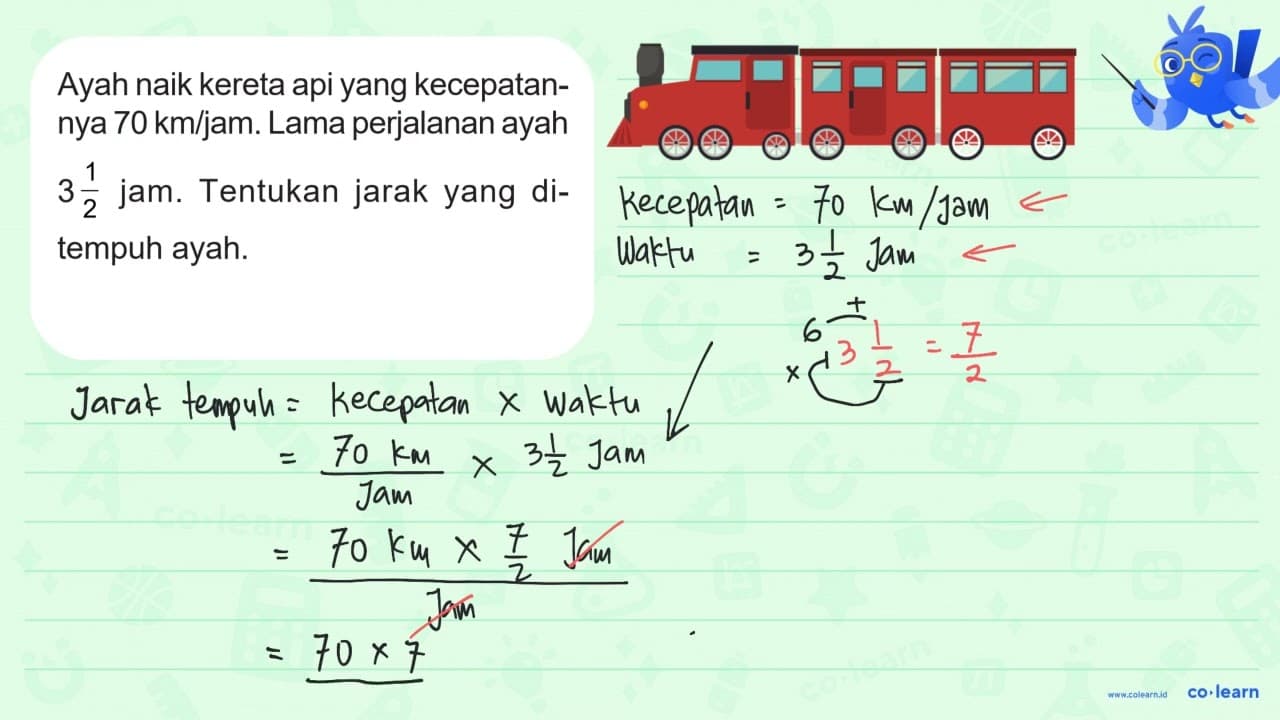 Ayah naik kereta api yang kecepatan-
nya 70 km/jam. Lama perjalanan ayah
3 1/2 jam. Tentukan jarak yang di-
tempuh ayah.
Kecepatan = 70 km/jam ←
Waktu = 3 1/2 Jam ←
6 +
x 3 1/2 = 7/2
Jarak tempuh = kecepatan x waktu
= 70 km / Jam x 3 1/2 Jam
= 70 km x 7/2 Jam
Jam
= 70 x 7
co·learn
co·learn
co·learn
co·learn
www.colearn.id co·learn